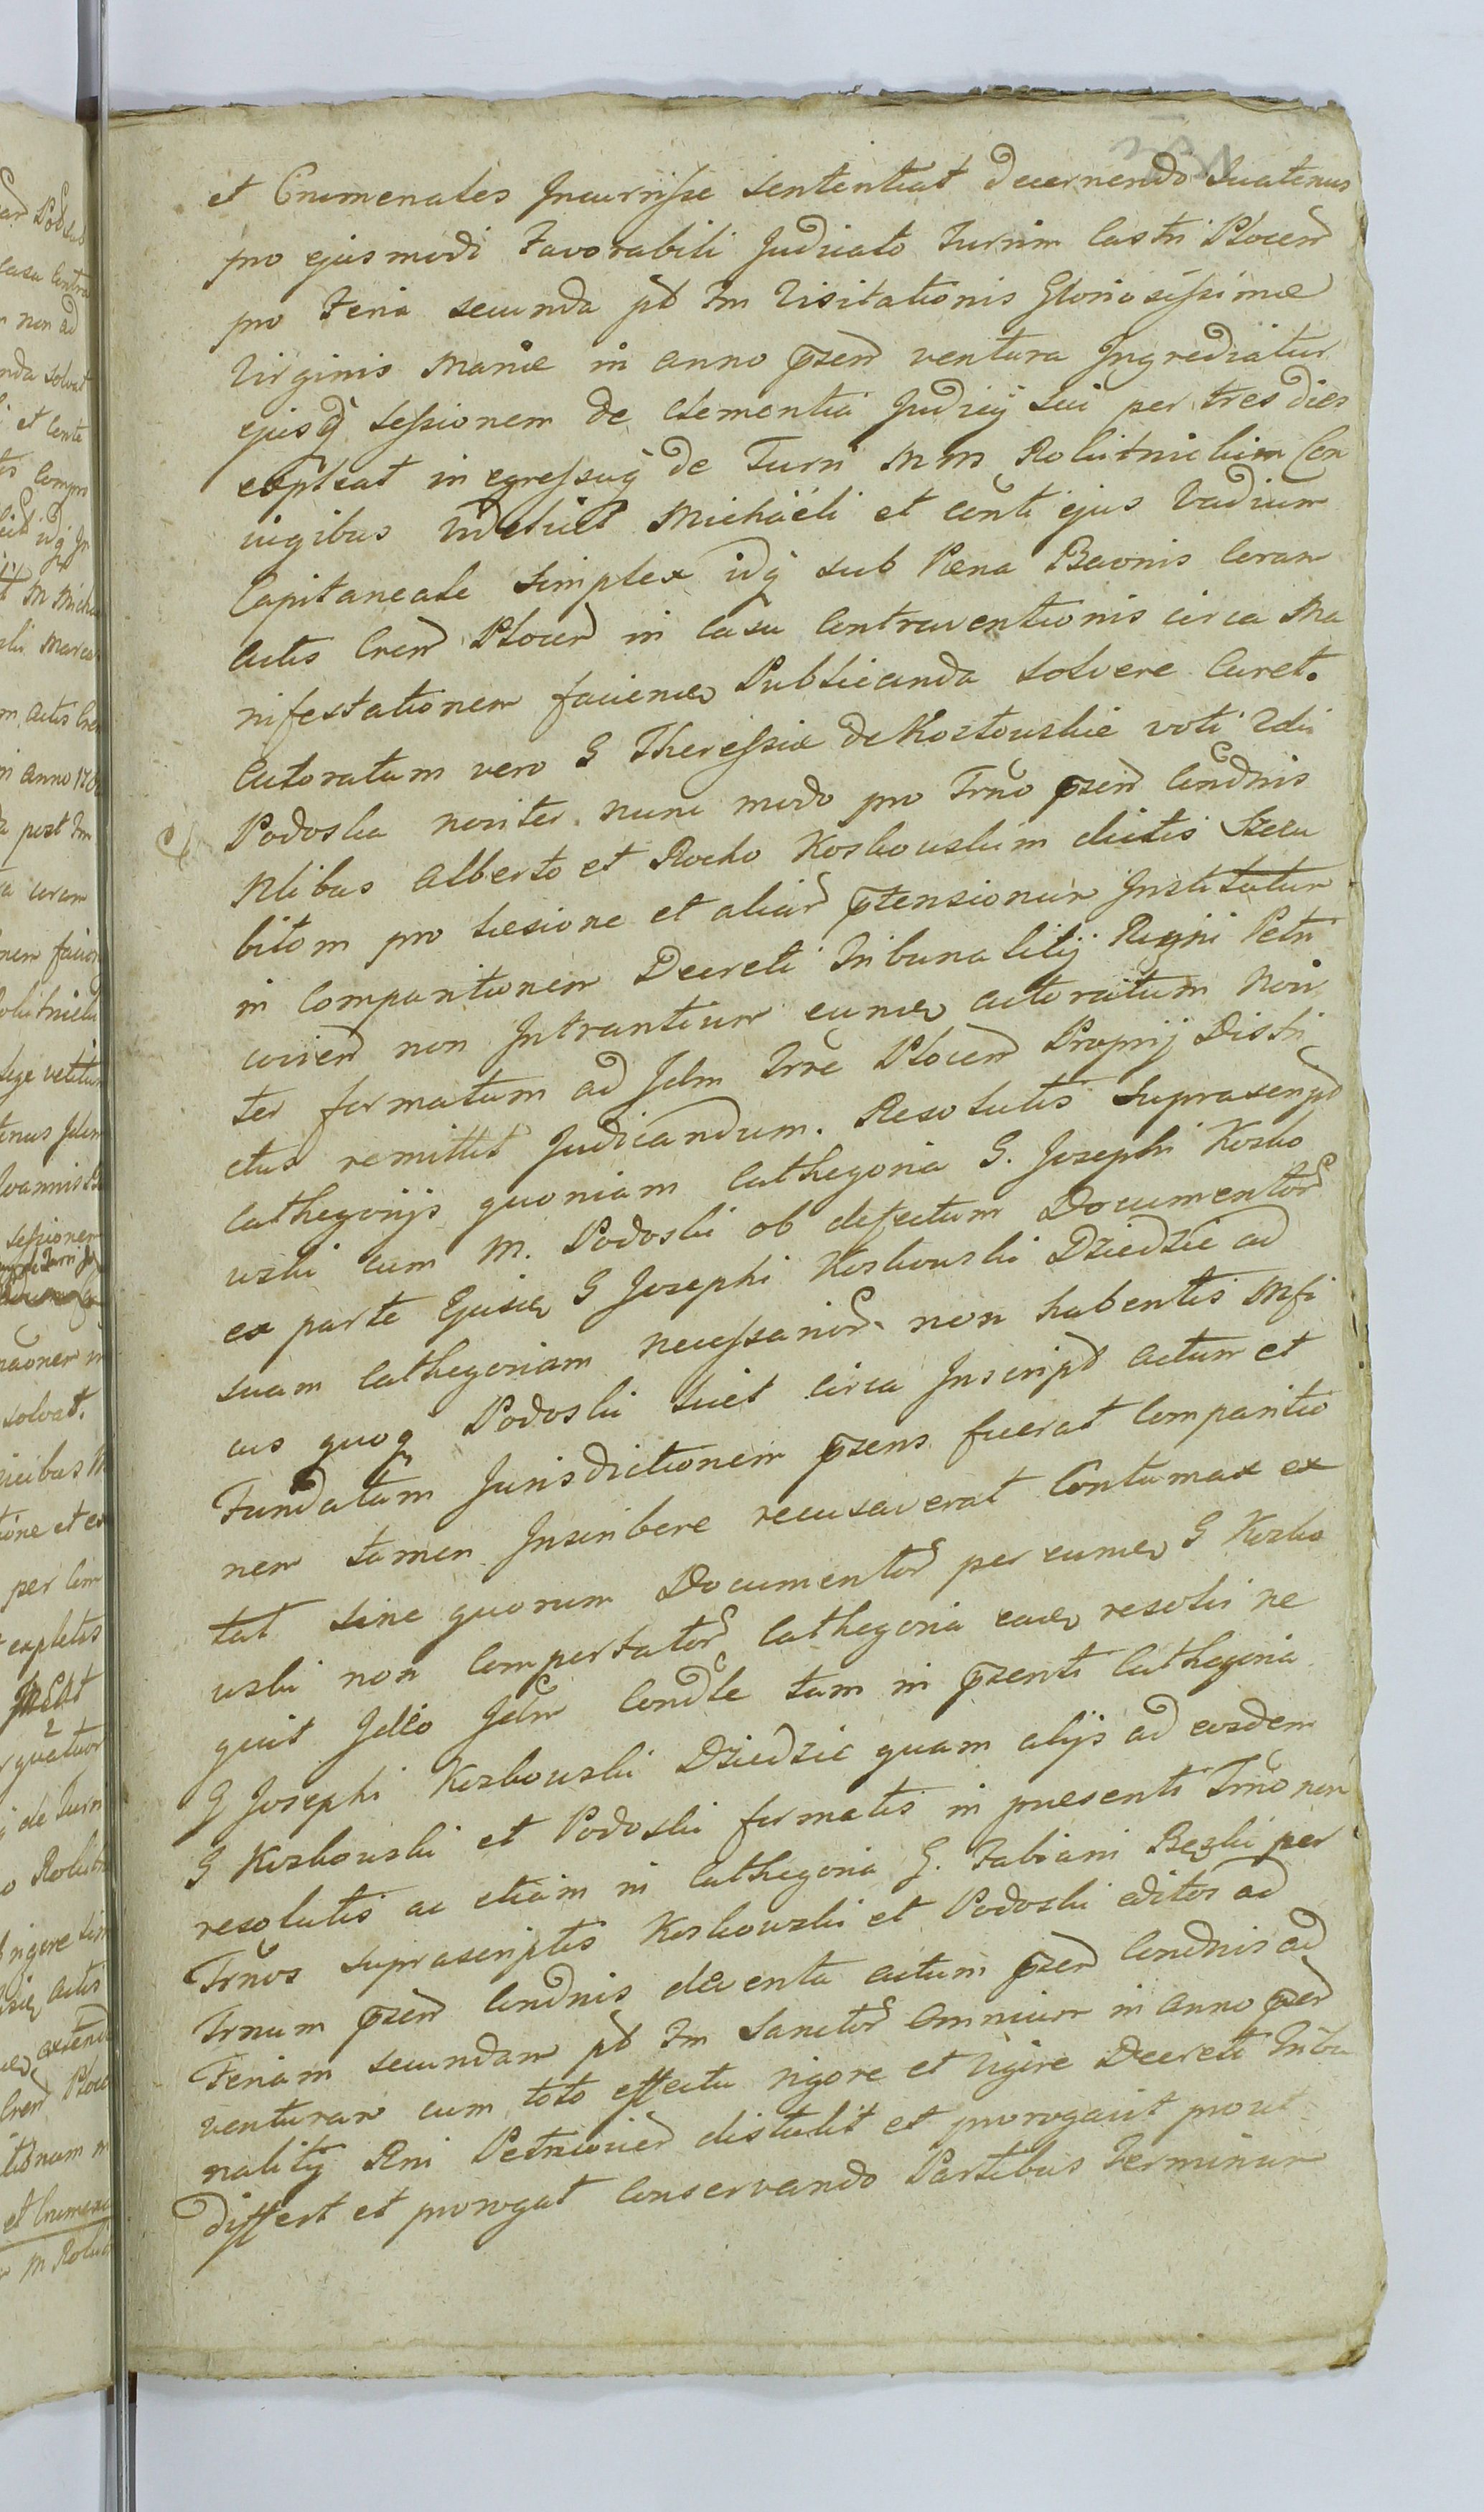 et Crimenales Incurrisse sententiat decernendo Quatenus
pro ejusmodi Favorabili Judicato Turrim Castri Plocen
pro Feria secunda pt Fm Visitationis Gloriosissimæ
Virginis Mariæ in anno pzen ventura Ingrediatur
ejusq sessionem de Clementia Judicij sui per tres dies
expleat in egressuq de Turri M M Rokitnickim Con
iugibus videlicet Michaeli et conti ejus Vadium
Capitaneale simplex idq sub Pæna Baonis Coram
Actis Cren Plocen in Casu Contraventionis circa Ma
nifestationem faciendæ Publicanda solvere Curet.
Actoratum vero G Theressiæ de Kostowskie voti 2di
Podoska noviter nunc modo pro Trno pzen Condnis
Nlibus Alberto et Rocho Koskouskim dictis Szelu
bitom pro læsione et aliar ptensionum Instituitur
in Comparitionem Decreti Tribunalitij Regni Petri
covien non Intrantium eundem actoratum Novi
ter formatum ad Jdm Trre Plocen Proprij Distri
ctus remittit Judicandum. Resolutis suprascript
Cathegorijs quoniam Cathegoria G. Josephi Kosko
uski cum M. Podoski ob defectum Documentor
ex parte Ejusdem G Josephi Koskouski Dziedzic ad
suam Cathegoriam necessarior non habentis Mfi
cus quoq Podoski licet circa Inscript actum et
Fundatam Jurisdictionem pzens fuerat Comparitio
nem tamen Inscribere recusaverat Contumax ex
tat sine quorum Documentor per eundem G Kosko
uski non Comportator Cathegoria eadem resolvi ne
quit Jdeo Jdm Condle tam in pzenti Cathegoria
G Josephi Koskouski Dziedzic quam alijs ad eosdem
G Koskouski et Podoski formatis in præsenti Trno non
resolutis ac etiam in Cathegoria G. Fabiani Bezki per
Trnos suprascriptis Koskowski et Podoski editos ad
Trnum pzen Condnis deventa actum pzen Condnis ad
Feriam secundam pt Fm Sanctor Omnium in anno pzen
venturam cum toto effectu rigore et vigore Decreti Tribu
nalitij Rni Petricovien distulit et prorogavit prout
differt et prorogat Conservando Partibus Terminum